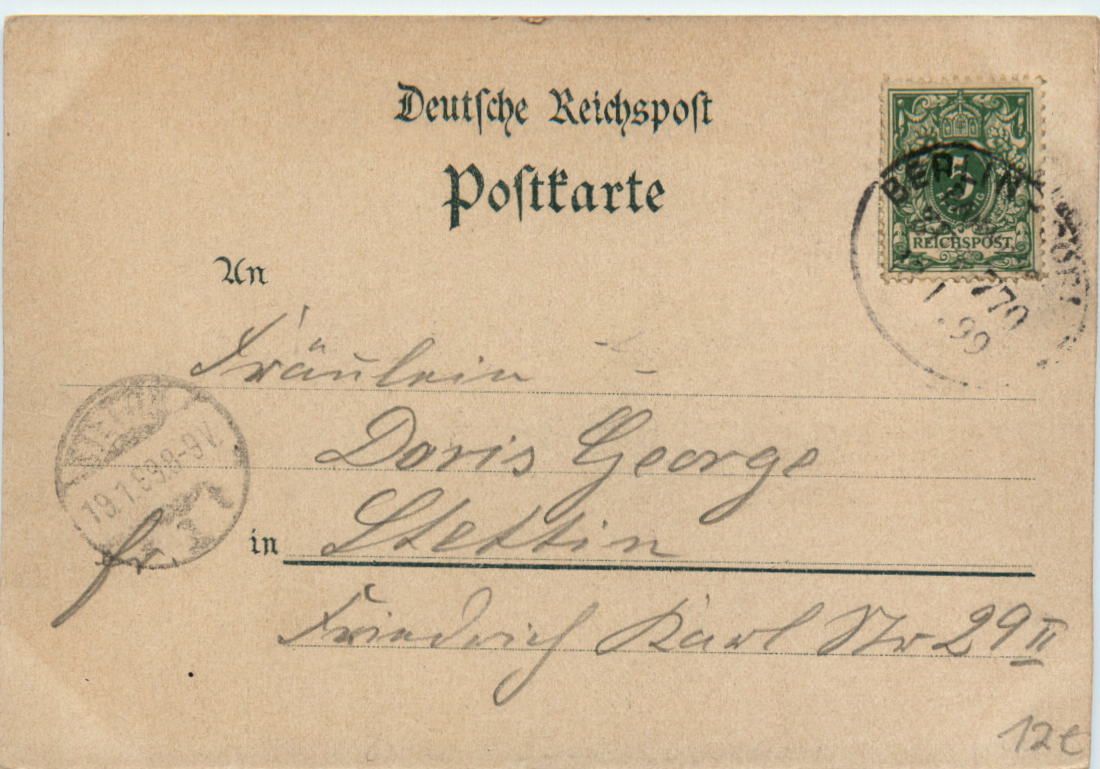 Deutsche Reichspost
Postkarte
5
REICHSPOST
BERLIN
770
1 99
An
Fräulein
Doris George
19.1.99.8-9V.
in Stettin
Friedrich Karl Str 29 II
12€